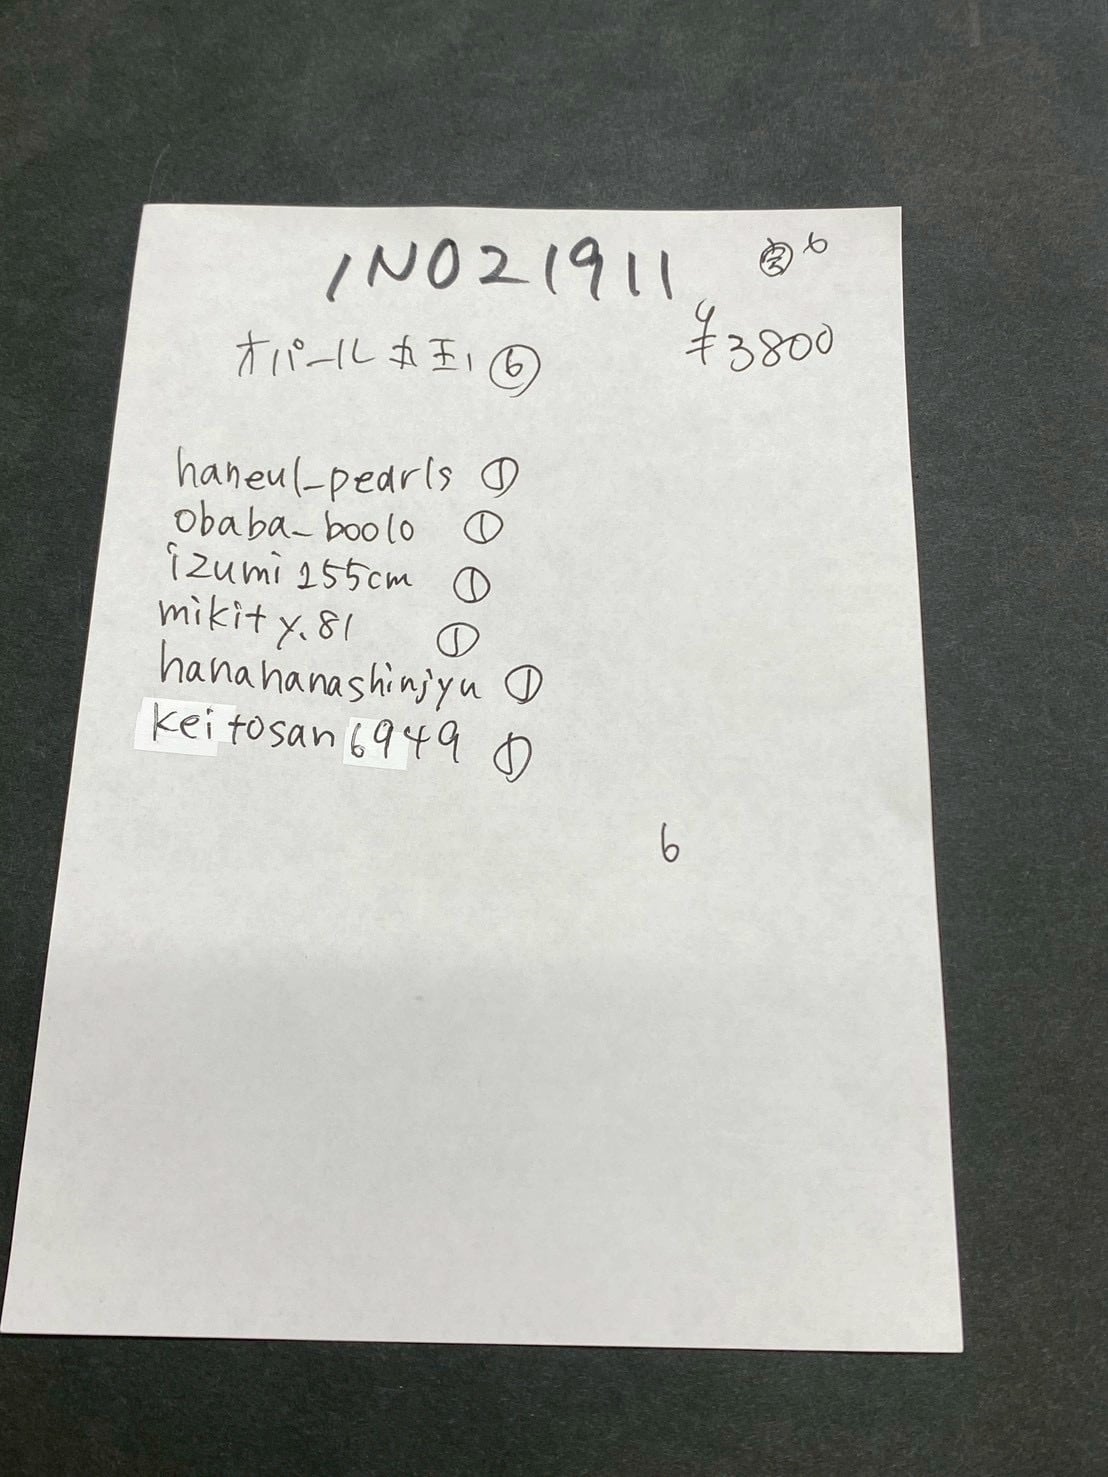 INO21911
オパール丸玉 ⑥
¥3800
haneul_pearls ①
obaba_boolo ①
izumi255cm ①
mikity.81 ①
hanahanashinjyu ①
keitosan6949 ①
6